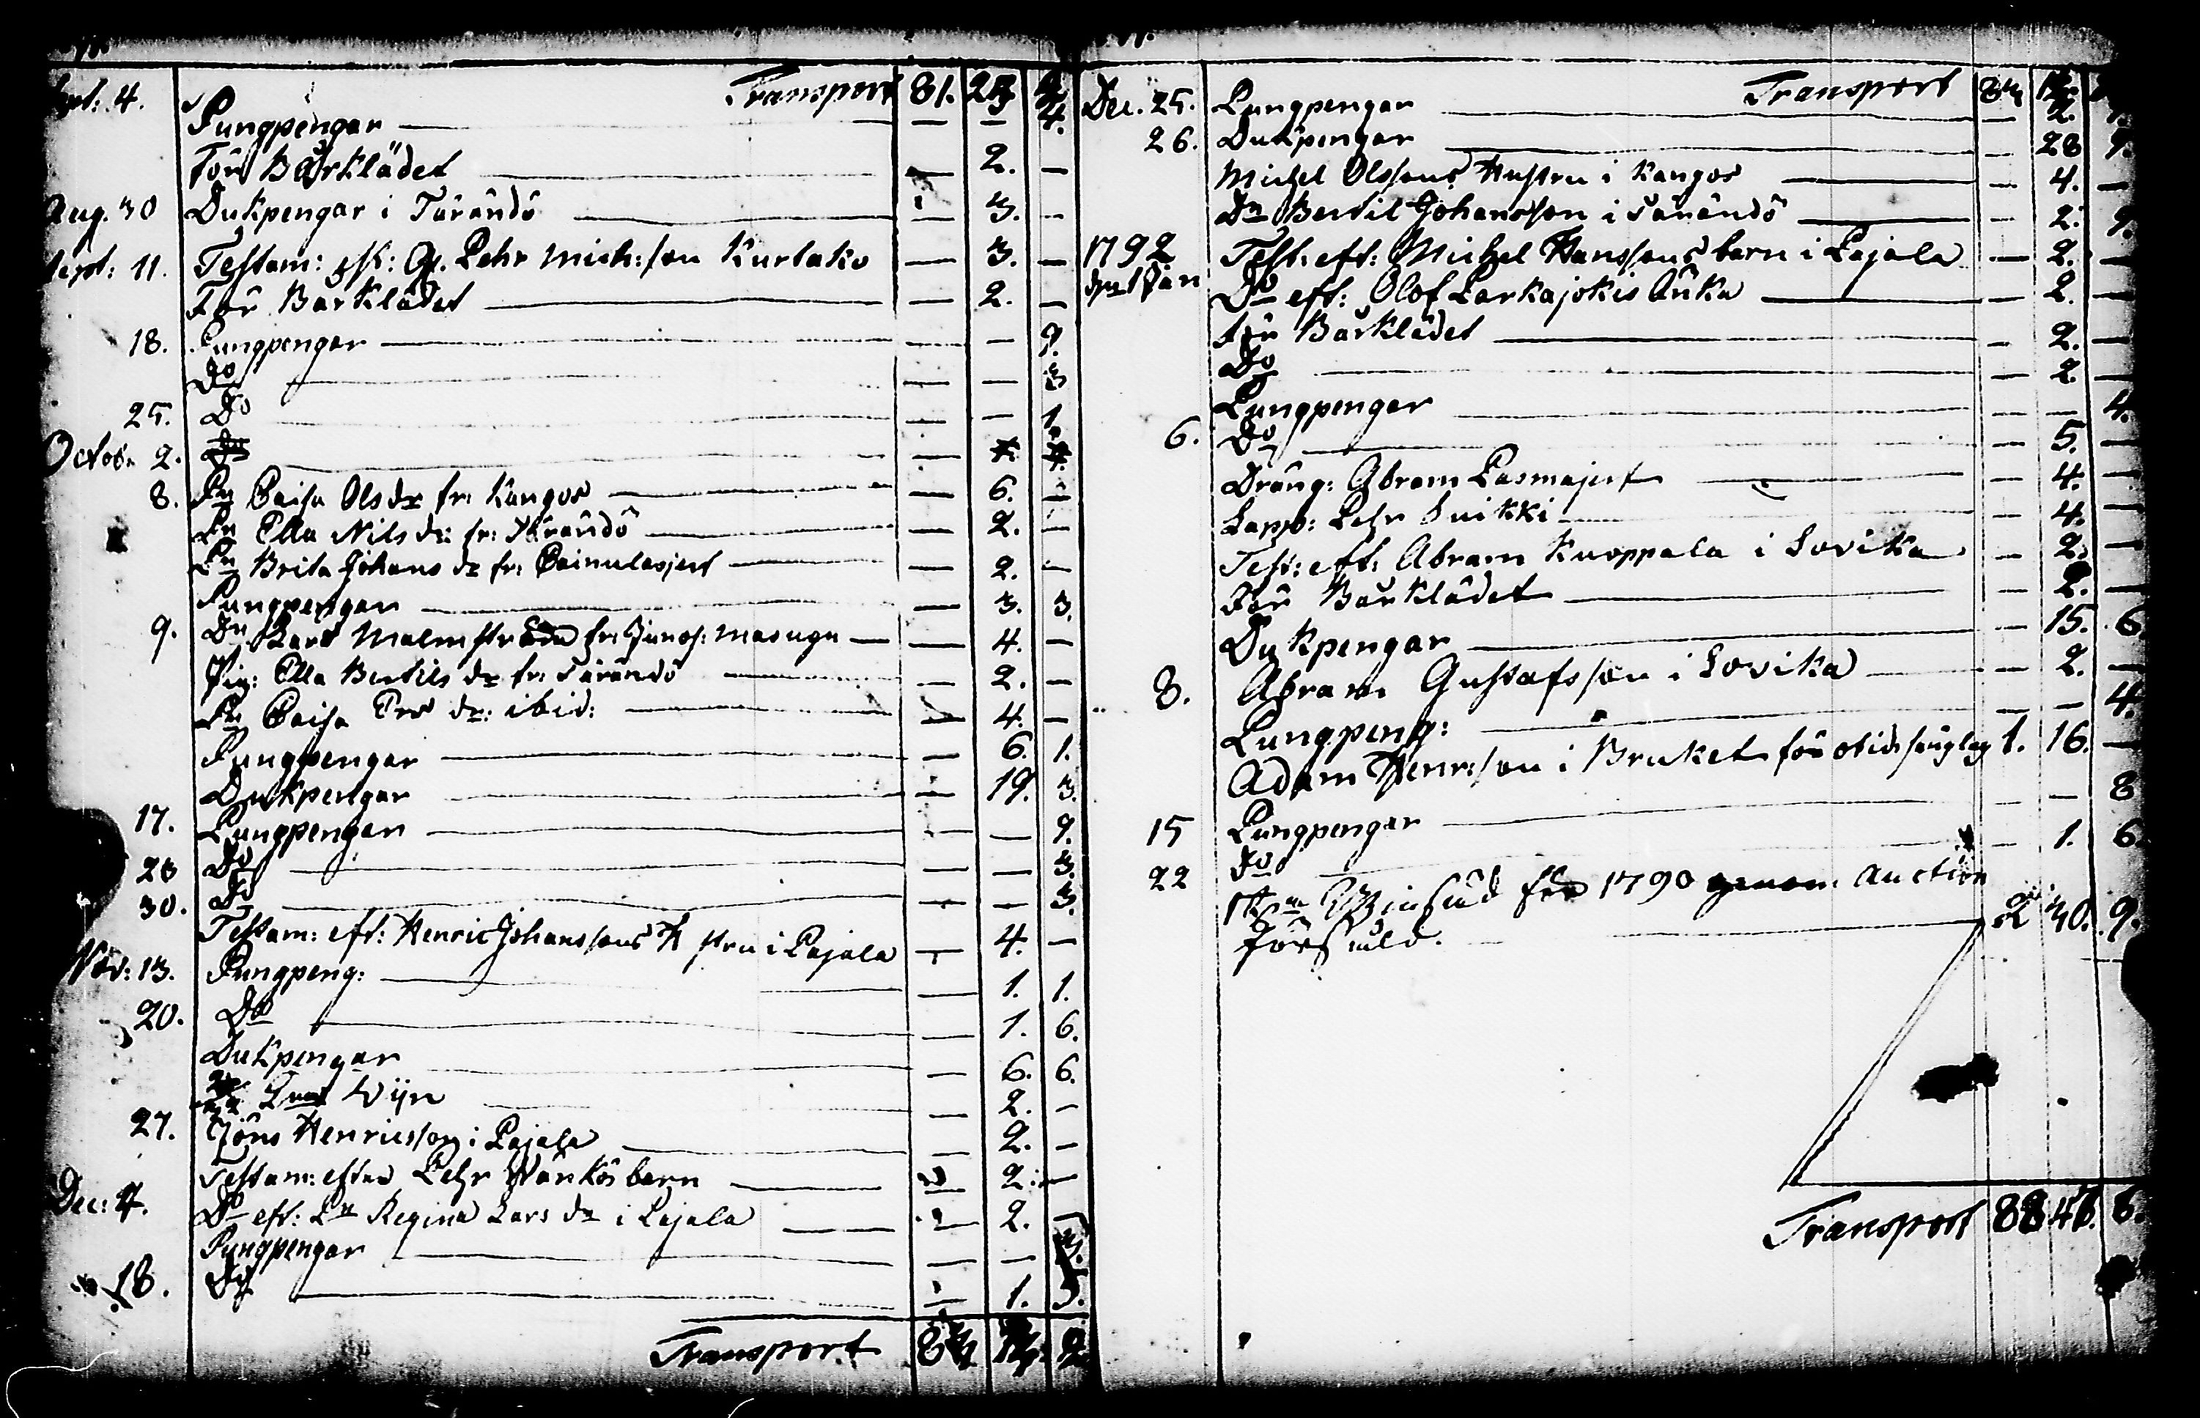 Transport 81.
Sept: 4. Pungpengar — — 4.
För Bårklädet — 2. —
Aug. 30 Dukpengar i Tärändö — 3. —
Sept: 11. Testam: Pehr Mich:son Kurtako — 3. —
För Barklädet — 2. —
18. Pungpengar — — 9.
Do — — 3
25. Do — — 1.
Octob. 2. Do
8. Pn Caisa Olsdr fr: Kangos — 6. —
Pn Ella Nilsdr: fr: Tärändö — 2. —
Pn Brita Johansdr fr: Painulasjert — 2. —
Pungpengar — 3. 3.
9. Dn Lars Malmström fr: Junos: masugn — 4. —
Pig: Ella Bertils dr fr: Tärändö — 2. —
Pn Caisa Ers dr: ibid: — 4. —
Pungpengar — 6. 1.
Dukpengar — 19. 3.
17. Pungpengar — — 9.
23 Do — — 3.
30. Do — — 3.
Testam: eft: Henric Johanssons Hstru i Pajala — 4. —
Nov: 13. Pungpeng: — 1. 1.
20. Do — 1. 6.
Dukpengar — 6. 6.
Wijn — 2. —
27. Jöns Henricsson i Pajala — 2. —
Testam: efter Pehr Wänkös barn — 2. —
Dec: 4. Do eft: Pn Regina Lars dr i Pajala — 2. —
Pungpengar — — 3.
18. Do — 1. 3.
Transport
Transport
Dec. 25. Pungpengar — 2.
26. Dukpengar — 28 9.
Michel Olssons Hustru i Kangos — 4. —
Dn Bertil Johansson i Tärändö — 2. 9.
1792 Test: eft: Michel Hanssons barn i Pajala — 2. —
d. 1 Jan Do eft: Olof Larkajokis Änka — 2. —
för Bårklädet — 2. —
Do — 2. —
Pungpengar — — 4.
6. Do — 5. —
Dräng: Abram Pasmajert — 4. —
Lapp: Pehr Snikki — 4. —
Test: eft: Abram Kuoppala i Lovika — 2. —
För Bårklädet — 2. —
Dukpengar — 15. 6
8. Abram Gustafsson i Lovika — 2. —
Pungpeng: — — 4.
Adam Henr:son i Bruket för otids 1. 16. —
15 Pungpengar — — 8
22 Do — 1. 6.
för 1790 genom Auction
försuld. 2 30. 9.
Transport 88 8.